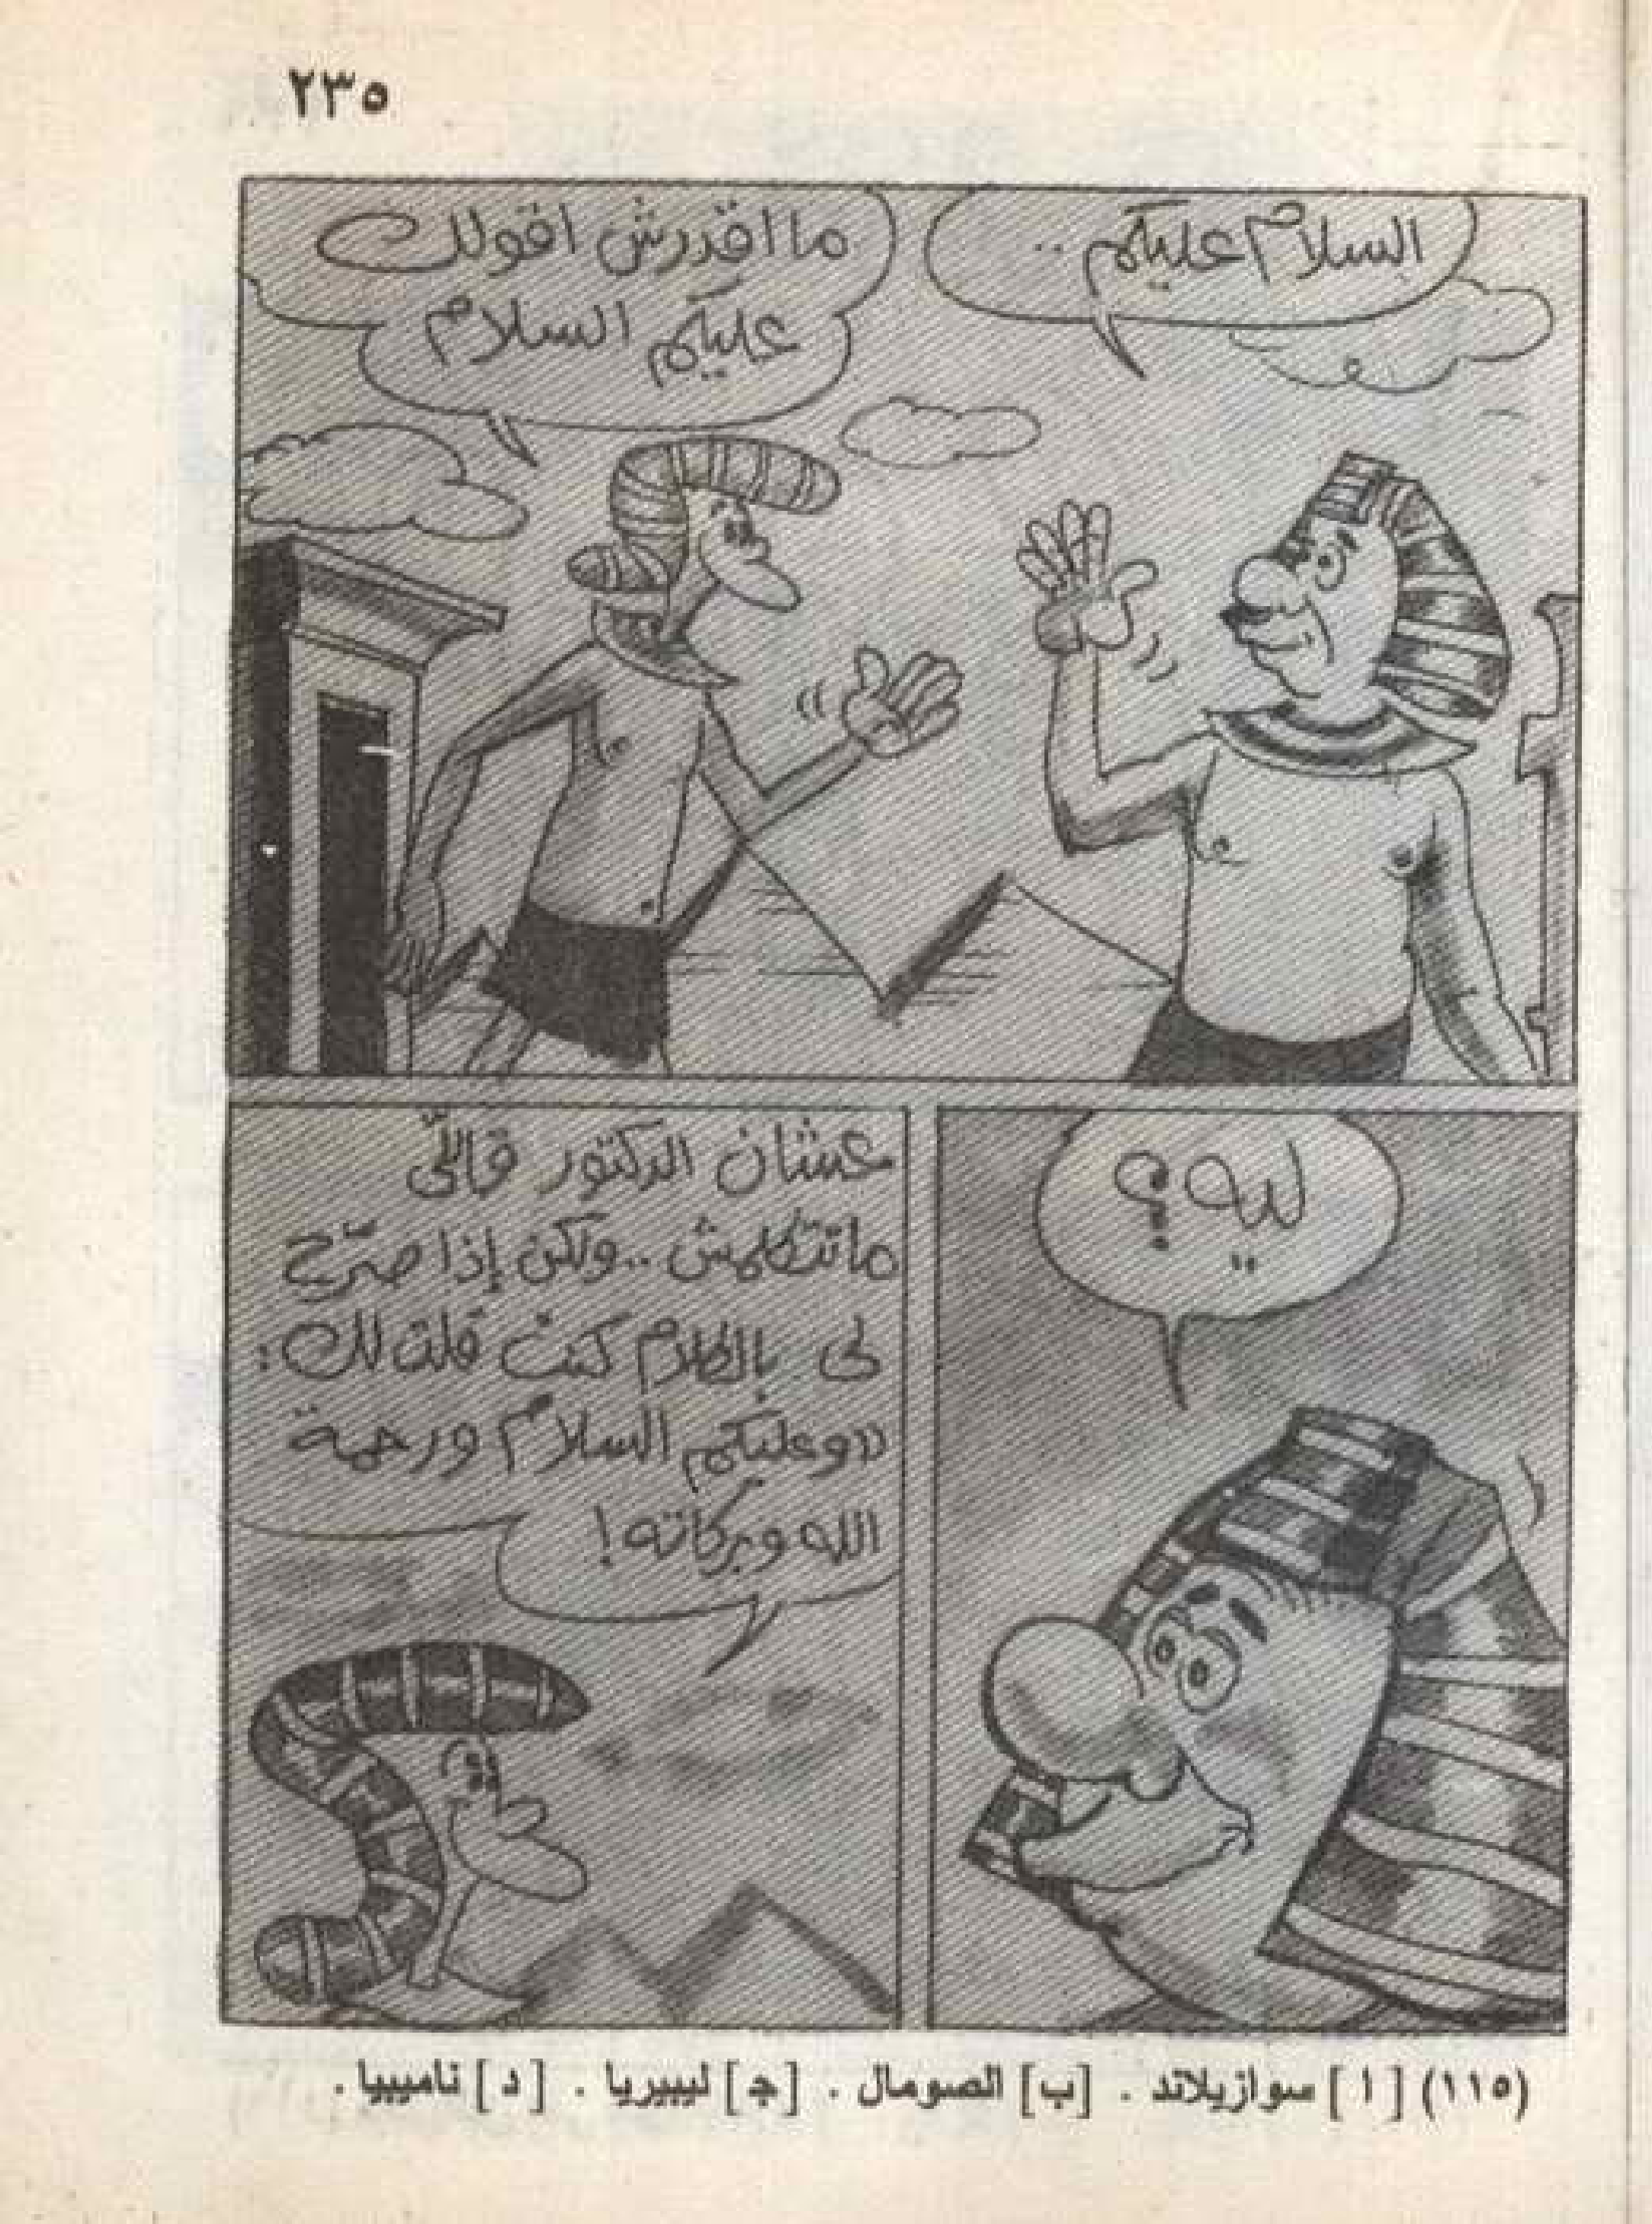 ٢٣٥
السلام عليكم ..
ما اقدرش اقولك
عليكم السلام
ليه ؟
عشان الدكتور قاللّى
ماتتكلمش .. ولكن إذا صرّح
لى بالكلام كنت قلت لك :
«وعليكم السلام ورحمة
الله وبركاته !
(١١٥) [ ا ] سوازيلاند . [ب] الصومال . [ج] ليبيريا . [ د ] ناميبيا .